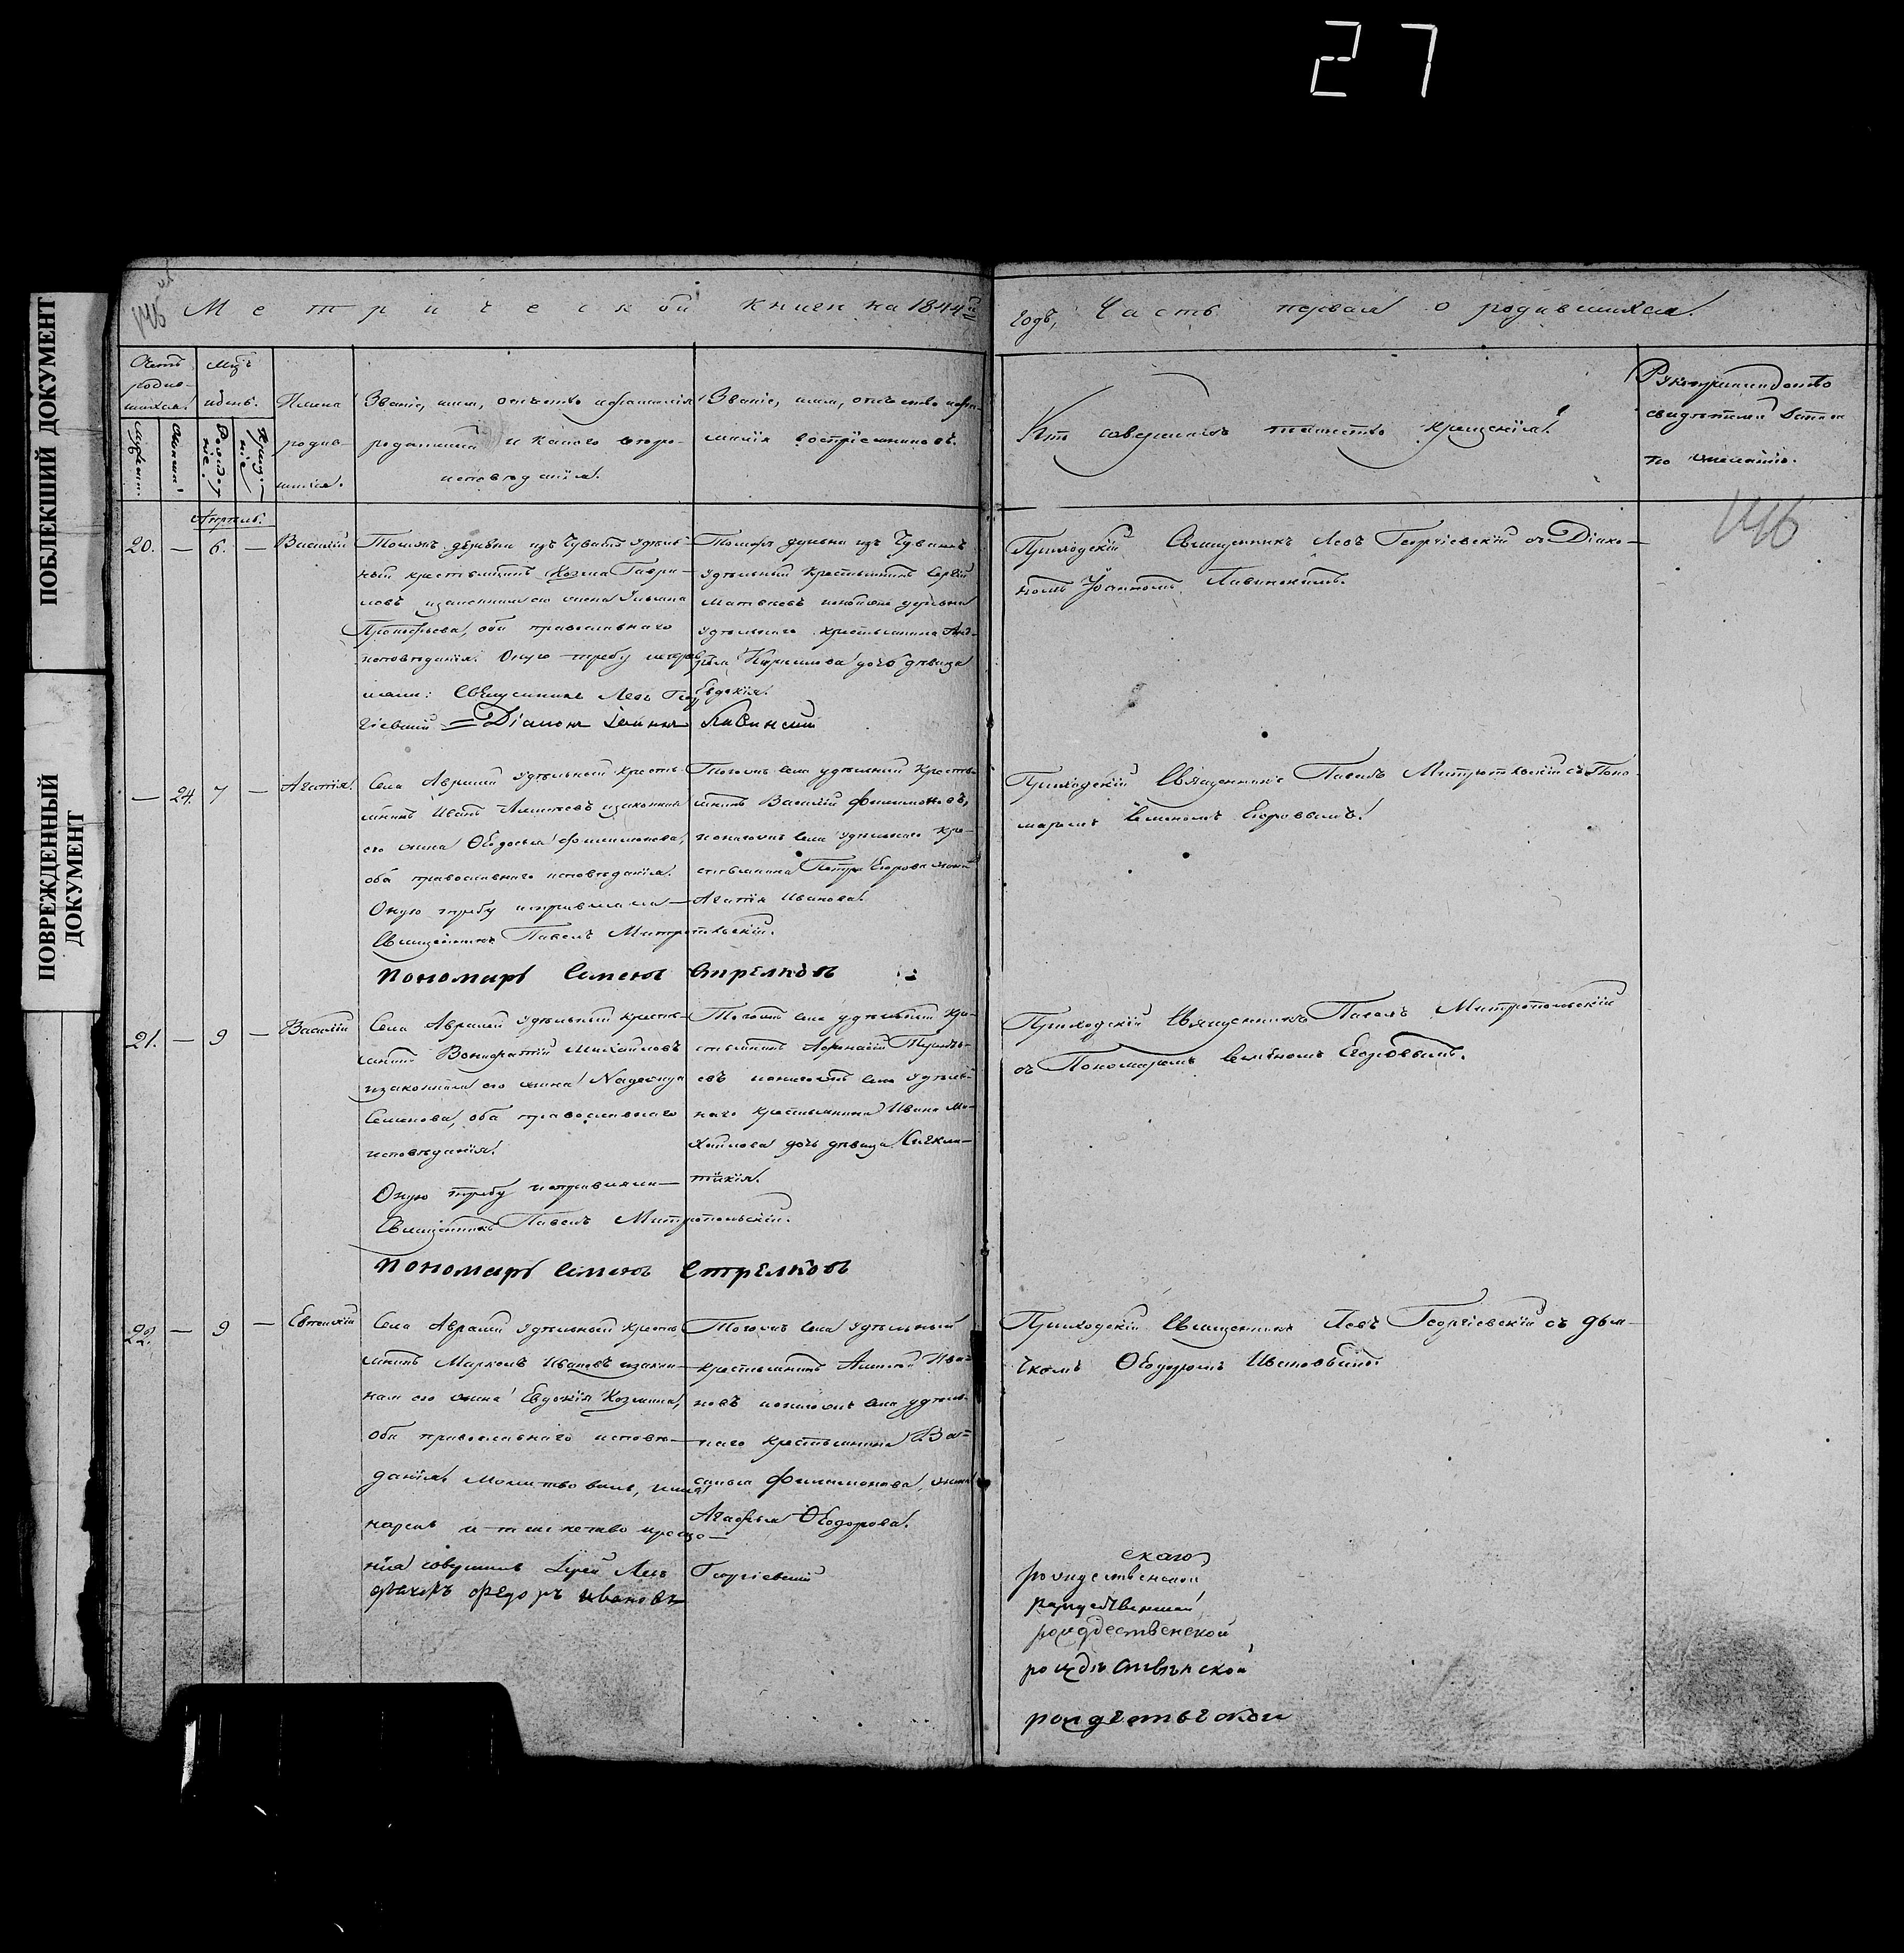 27
ПОБЛЕКШИЙ ДОКУМЕНТ
ПОВРЕЖДЕННЫЙ
ДОКУМЕНТ
146
Метрической книги на 1844й
годъ, Часть первая о родившихся.
Счетъ
родив-
шихся.
Мѣс:
и день.
Имена
родив-
шихся.
Званіе, имя, отчество и фамилія
родителей и какого вѣро-
исповѣданія.
Званіе, имя, отчество и фа-
милія воспріемниковъ.
Кто совершалъ таинство крещенія.
Рукоприкладство
свидѣтелей записи
по желанію.
146
Апрѣль.
20. — 6. — Василій
деревни изъ Чувашъ удѣль-
ный крестьянинъ Козма Гаври-
ловъ и законная его жена
Прокофьева, оба православнаго
исповѣданія. Оную требу исправ-
ляли: Священникъ Левъ Геор-
гіевскій = Діаконъ Іоаннъ Лавинскій
деревни изъ Чувашъ
удѣльный крестьянинъ Сергѣй
Матвѣевъ деревни
удѣльнаго крестьянина
Кирилова дочь дѣвица
Евдокія.
Приходскій Священникъ Левъ Георгіевскій съ Діако-
номъ Іоанномъ Лавинскимъ.
— 24. 7 — Агапія.
Села Аврали удѣльный кресть-
янинъ Иванъ Алексѣевъ и законная
его жена Ѳеодосья Филимонова,
оба православнаго исповѣданія.
Оную требу исправляли
Священникъ Павелъ Митропольскій.
Пономарь Семенъ Стрелковъ
Тогожъ села удѣльный кресть-
янинъ Василій Филимоновъ,
и тогожъ села удѣльнаго кре-
стьянина Петра Егорова жена
Агапія Иванова.
Приходскій Священникъ Павелъ Митропольскій съ Поно-
маремъ Семеномъ Егоровымъ.
21. — 9 — Василій
Села Аврали удѣльный кресть-
янинъ Михайловъ
и законная его жена Надежда
Семенова, оба православнаго
исповѣданія.
Оную требу исправляли
Священникъ Павелъ Митропольскій.
Пономарь Семенъ Стрелковъ
Тогожъ села удѣльный кре-
стьянинъ Аѳонасій
и тогожъ села удѣль-
наго крестьянина Ивана Ми-
хайлова дочь дѣвица Сигкли-
тикія.
Приходскій Священникъ Павелъ Митропольскій
съ Пономаремъ Семеномъ Егоровымъ.
22. — 9 — Евтихій
Села Аврали удѣльный кресть-
янинъ Маркелъ Ивановъ и закон-
ная его жена Евдокія Козмина,
оба православнаго исповѣ-
данія. Молитвовалъ, имя
нарекъ и таинство креще-
нія совершилъ Іерей Левъ Георгіевскій
дьячокъ Федоръ Ивановъ
Тогожъ села удѣльный
крестьянинъ Алексѣй Ива-
новъ и тогожъ села удѣль-
наго крестьянина Ва-
силья Филимонова, жена
Агафья Ѳеодорова.
Приходскій Священникъ Левъ Георгіевскій съ дья-
чкомъ Ѳеодоромъ Ивановымъ.
скаго
рождественской
рождественской
рождественской
рождественской
рождественской